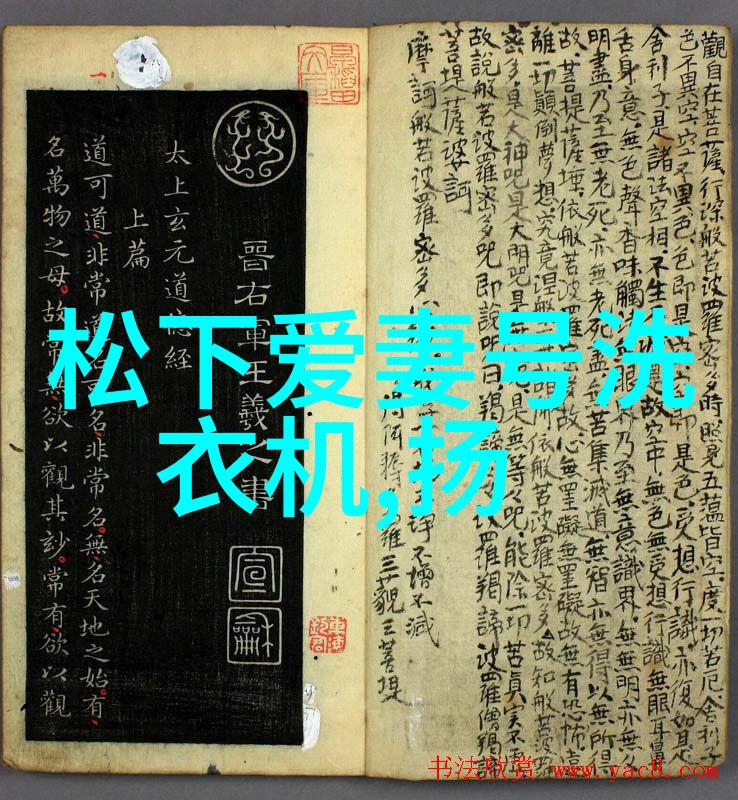 松下爱妻号洗
衣机,扬
觀自在菩薩行深般若波羅密多時照見五蘊皆空度一切若厄舍利子
色不異空空不異色色即是空即是色受想行識亦復如是
舍利子是諸法空相不生故空中無色無受想行識無眼耳鼻
舌身意無色聲香味觸法眼界乃至無意識界無無明亦無無
明盡乃至無老死亦無老死盡無苦集滅道無智亦無得以無所得
故菩提薩埵依般若波羅密多故心無罣礙無罣礙故無有恐怖遠
離一切顛倒夢想究竟涅槃依般若波羅密多故知般若波羅
密多是大神咒是大明咒是無等々咒能除一切苦真實不虛
故說般若波羅密多咒即說咒曰揭諦波羅揭諦波羅僧揭諦
菩提薩婆訶
摩訶般若波羅密多
不增不減
得阿耨羅三藐三菩提
晉右軍王羲之書
宣龢
太上玄元道德經
上篇
道可道非常道名可名非常名無名天地之始有
名萬物之母故常無欲以觀其妙常有欲以觀
书法欣赏 www.yac8.com